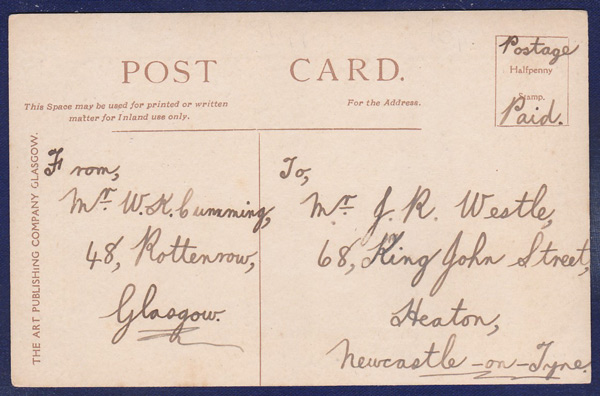 POST CARD.
This Space may be used for printed or written
matter for Inland use only.
For the Address.
Postage
Halfpenny
Stamp.
Paid.
THE ART PUBLISHING COMPANY GLASGOW.
From,
Mr. W.K. Cumming,
48, Rottenrow,
Glasgow.
To,
Mr. J. R. Westle,
68, King John Street,
Heaton,
Newcastle-on-Tyne.